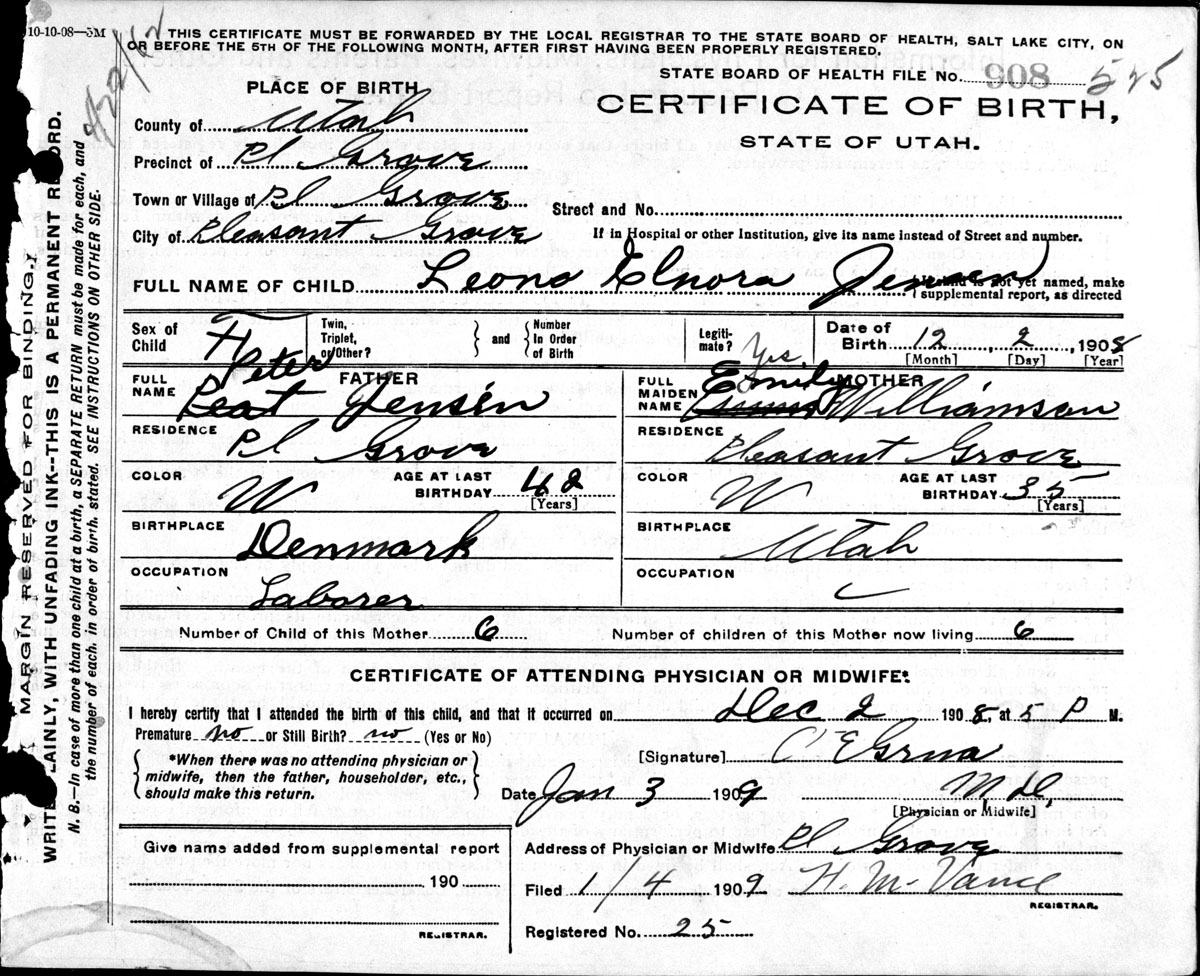 10-10-08—5M
THIS CERTIFICATE MUST BE FORWARDED BY THE LOCAL REGISTRAR TO THE STATE BOARD OF HEALTH, SALT LAKE CITY, ON
OR BEFORE THE 5TH OF THE FOLLOWING MONTH, AFTER FIRST HAVING BEEN PROPERLY REGISTERED.
STATE BOARD OF HEALTH FILE No. 908 525
PLACE OF BIRTH
CERTIFICATE OF BIRTH,
STATE OF UTAH.
County of Utah
Precinct of Pl Grove
Town or Village of Pl Grove
Street and No.
City of Pleasant Grove
If in Hospital or other Institution, give its name instead of Street and number.
FULL NAME OF CHILD Leona Elnora Jensen
is not yet named, make
supplemental report, as directed
Sex of Child F
Twin, Triplet, or Other? and Number In Order of Birth
Legiti-mate? Yes
Date of Birth 12 2 1908
[Month] [Day] [Year]
FATHER
FULL NAME Peter Jensen
MOTHER
FULL MAIDEN NAME Emily Williamson
RESIDENCE Pl Grove
RESIDENCE Pleasant Grove
COLOR W AGE AT LAST BIRTHDAY 42 [Years]
COLOR W AGE AT LAST BIRTHDAY 35 [Years]
BIRTHPLACE Denmark
BIRTHPLACE Utah
OCCUPATION Laborer
OCCUPATION
Number of Child of this Mother 6
Number of children of this Mother now living 6
CERTIFICATE OF ATTENDING PHYSICIAN OR MIDWIFE*
I hereby certify that I attended the birth of this child, and that it occurred on Dec 2 1908, at 5 P M.
Premature no or Still Birth? no (Yes or No)
*When there was no attending physician or
midwife, then the father, householder, etc.,
should make this return.
[Signature] C E Grua
Date Jan 3 1909 M.D.
[Physician or Midwife]
Give name added from supplemental report
190
REGISTRAR.
Address of Physician or Midwife Pl Grove
Filed 1/4 1909 H. M. Vance
REGISTRAR.
Registered No. 25
MARGIN RESERVED FOR BINDING.
WRITE PLAINLY, WITH UNFADING INK--THIS IS A PERMANENT RECORD.
N. B.—In case of more than one child at a birth, a SEPARATE RETURN must be made for each, and
the number of each, in order of birth, stated. SEE INSTRUCTIONS ON OTHER SIDE.